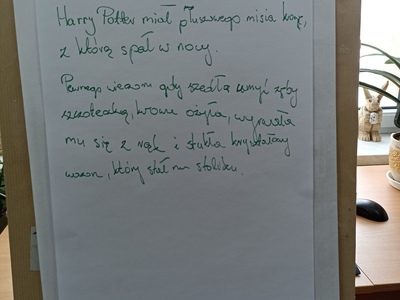 Harry Potter miał pluszowego misia
z którą spał w nocy.
Pewnego wieczoru gdy szedła umyć zęby
szczoteczką, krowa ożyła, wyrwała
mu się z rąk i stukła kryształowy
wazon, który stał na stoliku.